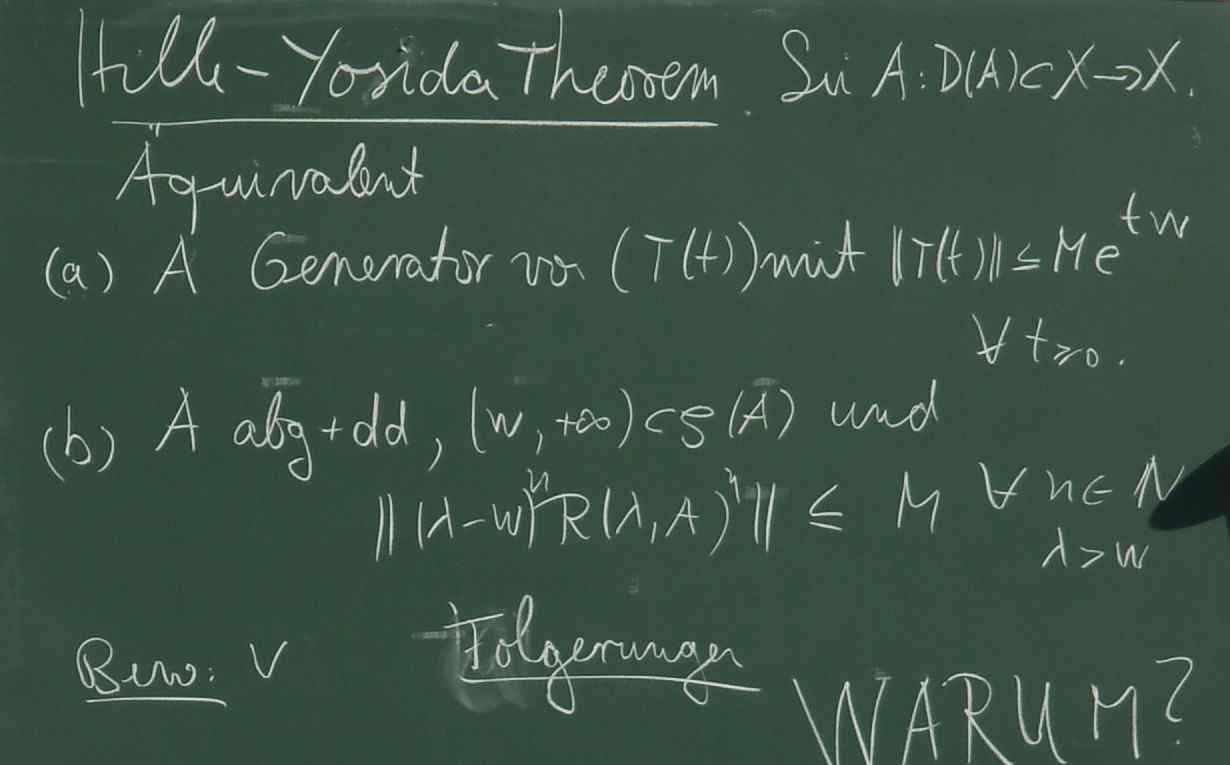 Hille-Yosida Theorem. Sei A: D(A)⊂X→X.
Äquivalent
(a) A Generator von (T(t)) mit ‖T(t)‖ ≤ Me^{tw}
∀ t≥0.
(b) A abg+dd, (w,+∞)⊂ρ(A) und
‖(λ-w)^n R(λ,A)^n‖ ≤ M ∀ n∈ℕ
λ>w
Bew: √ Folgerungen
WARUM?